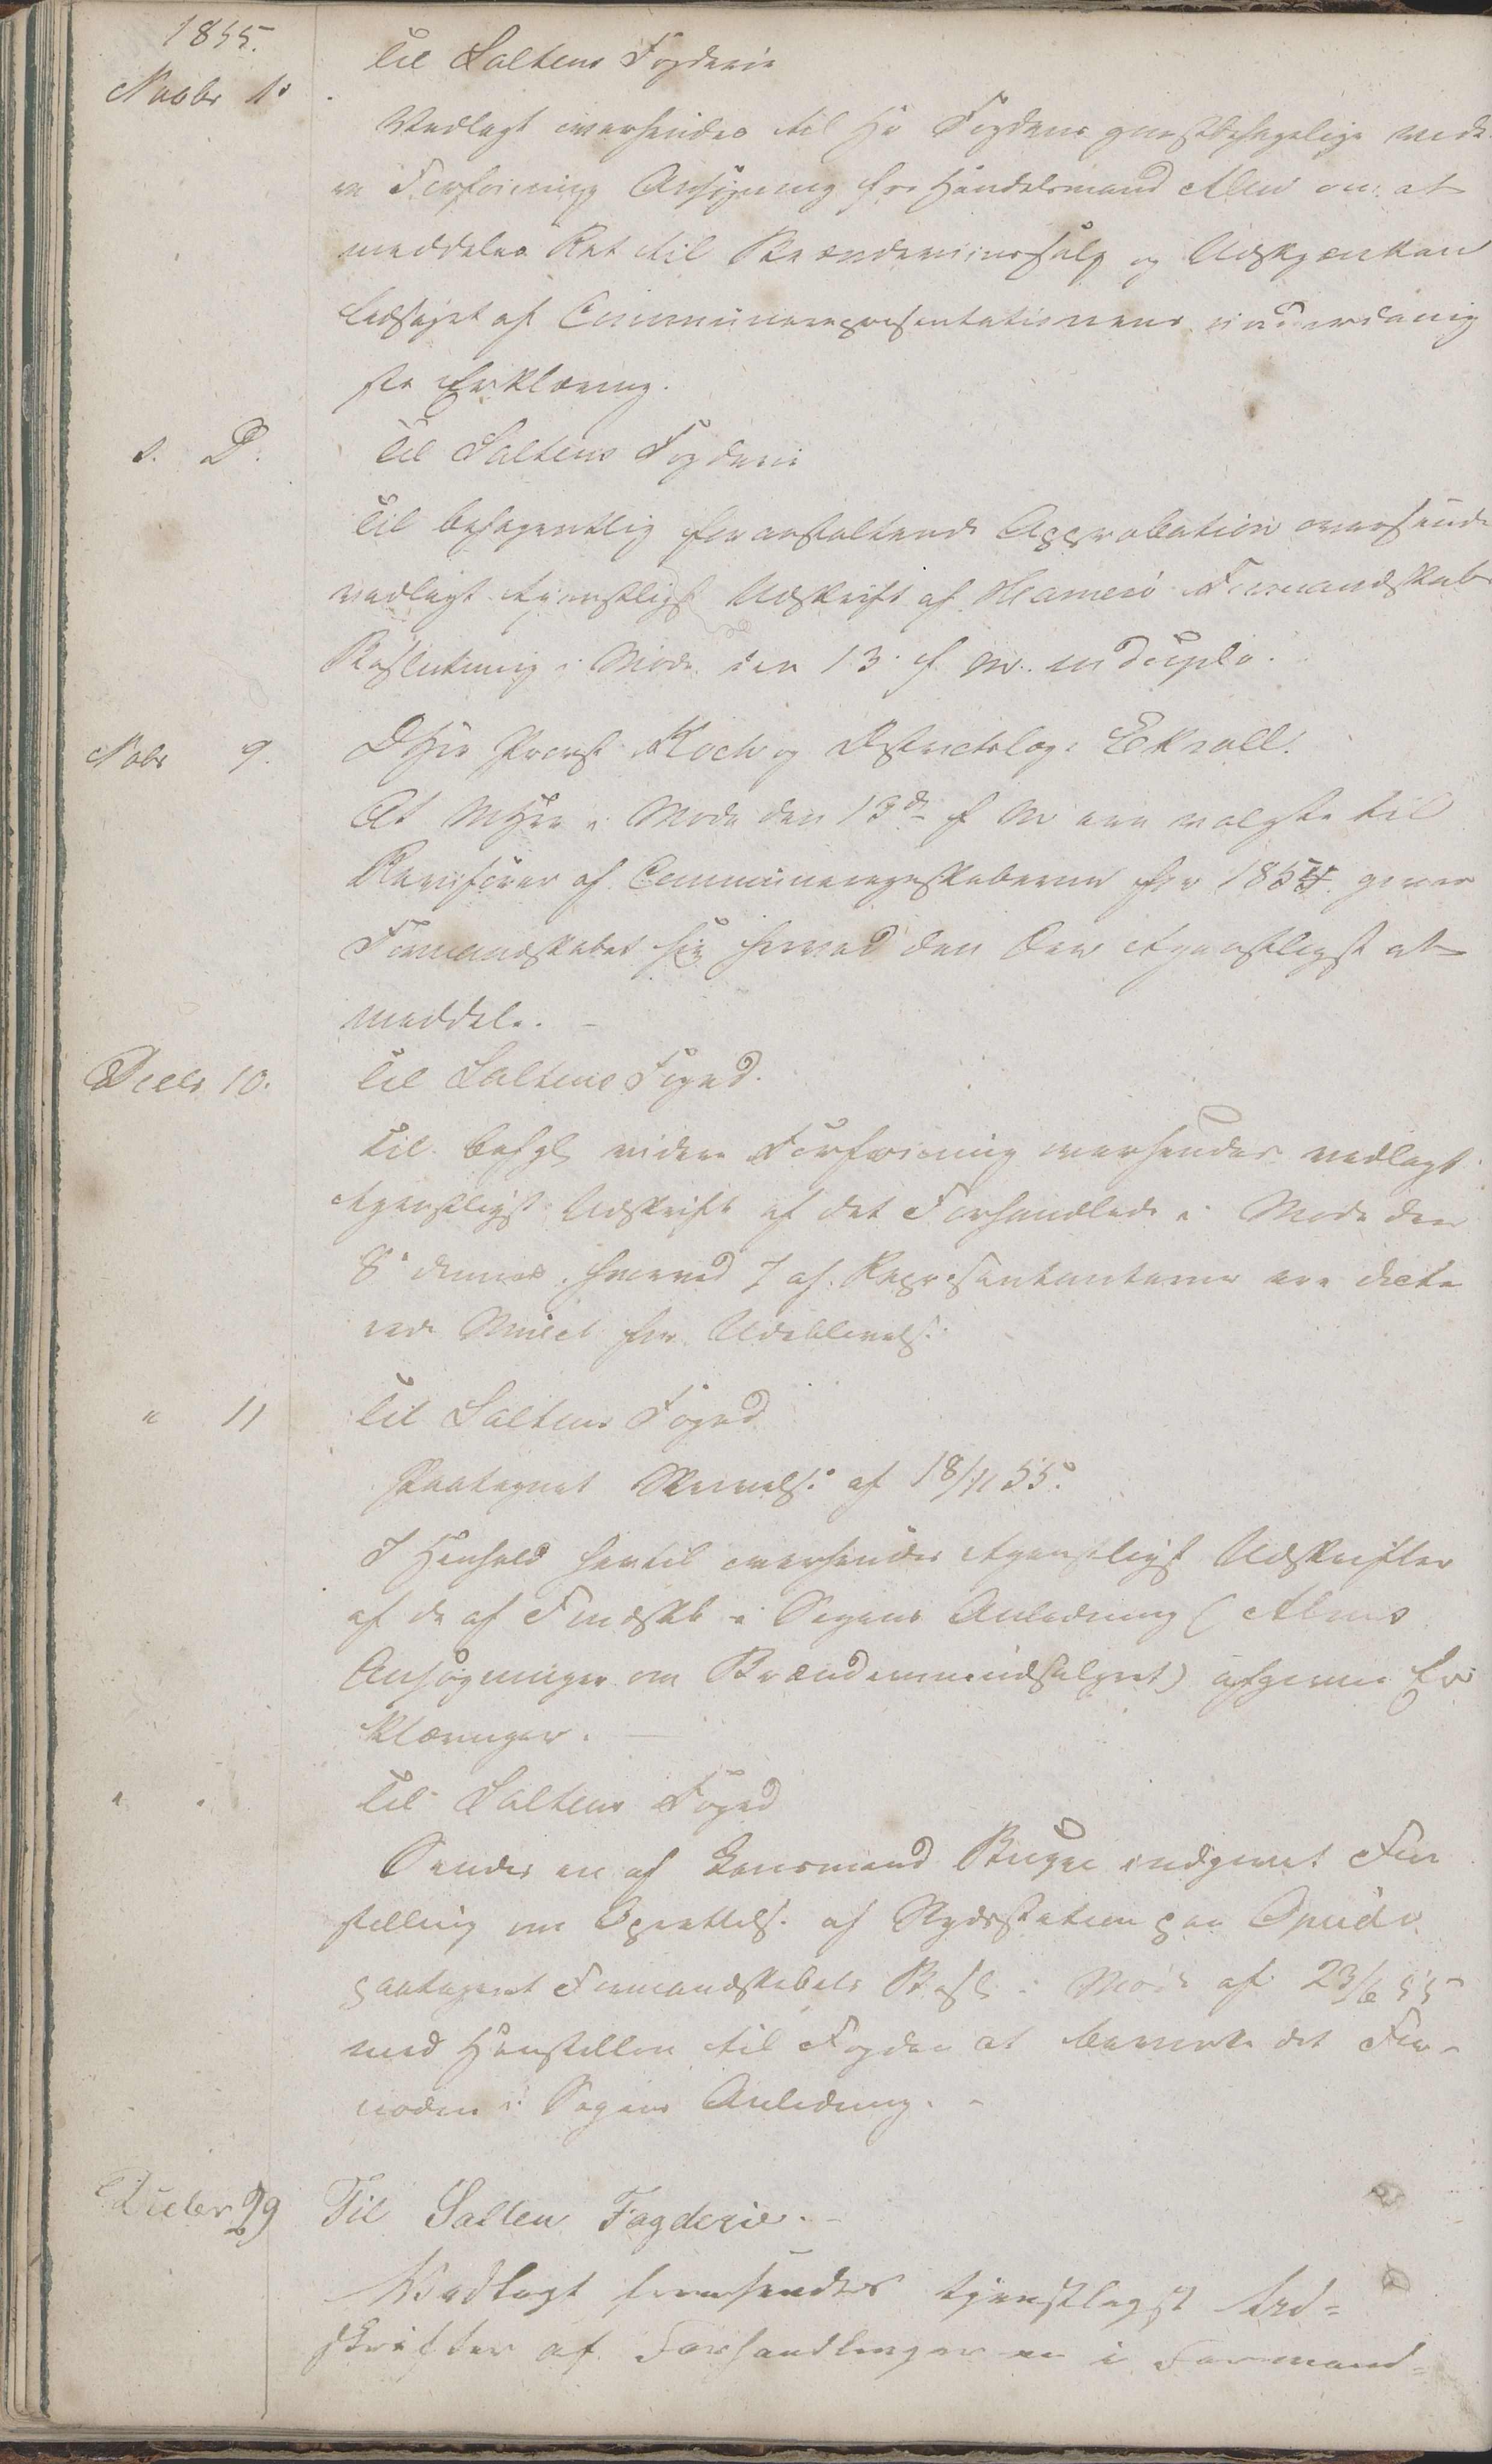 1855.
Novbr 1.
Til Saltens Fogderie
Vedlagt oversendes til Hr Fogdens gunstbehagelige vide-
re Forføining Ansøgning fra Handelsmand Alm om at
meddeles Ret til Brændeviinssalg og Udskjænken
ledsaget af Communerepresentationens underdanig
ste Erklæring.
s. D.
Til Saltens Fogderie
Til behagentlig foranstaltende Approbation oversendes
vedlagt tjenstligst Udskrift af Hamerø Formandskabs
Beslutning i Møde den 13 f. M. in duplo.
Nobr 9.
DHrr Provst Koch og Districtslæge Eckroll.
At DHrr i Møde den 13de f M ere valgte til
Revisorer af Communeregnskaberne for 1854 giver
Formandskabet sig herved den Ære tjenstligst at
meddele. –
Decbr 10.
Til Saltens Foged.
Til behgl videre Forføining oversendes vedlagt
tjenstligst Udskrift af det Forhandlede i Møde den
8 dennes, hvorved 7 af Repræsentanterne ere dicte
rede Mulct for Udeblivelse.
" 11
Til Saltens Foged
Paategnet Skrivelse af 18/11 55.
I Henhold hertil oversendes tjenstligst Udskrifter
af de af Fmdskb i Sagens Anledning (Alms
Ansøgninger om Brændeviinsudsalget) afgivne Er
klæringer. –
" "
Til Saltens Foged
Sendes en af Lensmand Bugge indgivet Fore
stilling om Oprettelse af Skydsstation paa
paategnet Formandskabets Besl i Møde af 23/6 55
med Henstillen til Fogden at bevirke det For-
nødne i Sagens Anledning. –
Decbr 29
Til Salten Fogderie. –
Vedlagt fremsendes tjenstligst Ud=
skrifter af Forhandlinger i Formand=